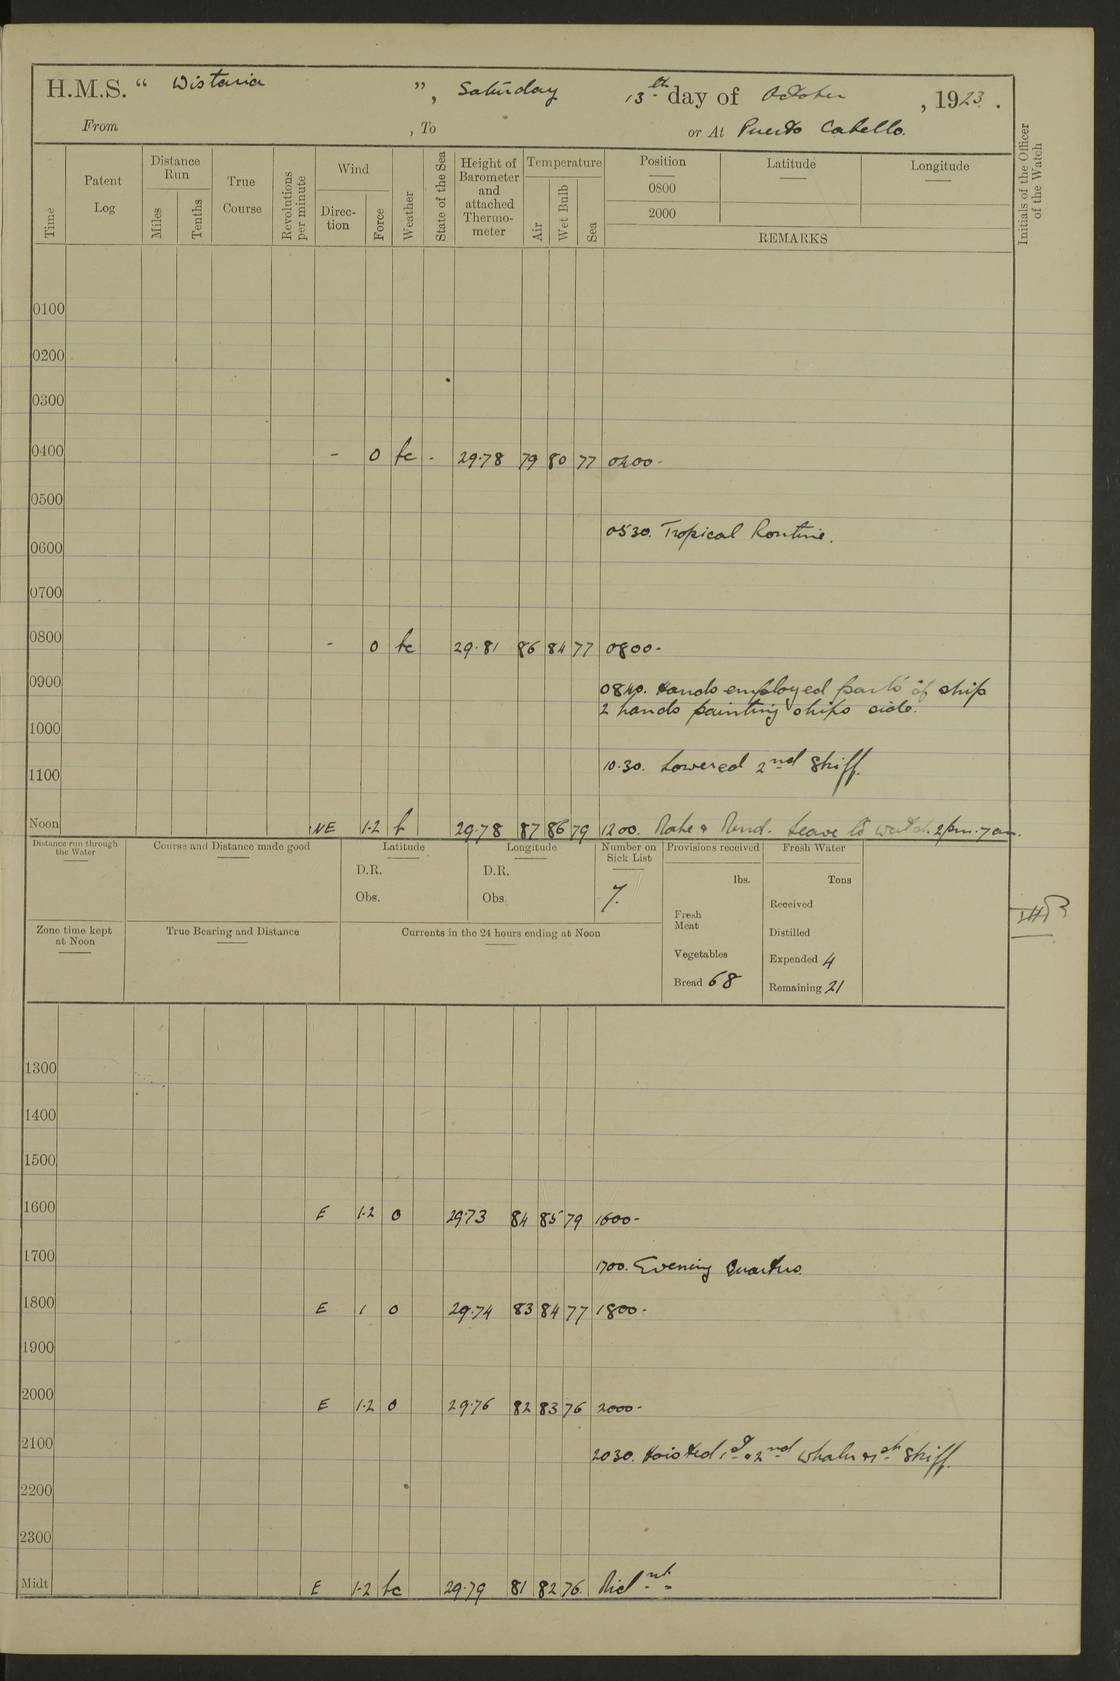 H.M.S. “ Wistaria ”, Saturday 13th day of October, 1923.
From , To or At Puerto Cabello.
Time
Patent Log
Distance Run
Miles
Tenths
True Course
Revolutions per minute
Wind
Direction
Force
Weather
State of the Sea
Height of Barometer and attached Thermometer
Temperature
Air
Wet Bulb
Sea
Position
0800
2000
Latitude
Longitude
REMARKS
Initials of the Officer of the Watch
0100
0200
0300
0400 - 0 bc - 29.78 79 80 77 0400-
0500
0530. Tropical Routine.
0600
0700
0800 - 0 bc 29.81 86 84 77 0800-
0900
0840. Hands employed parts of ship
2 hands painting ships side.
1000
10.30. Lowered 2nd Skiff.
1100
Noon NE 1-2 b 29.78 87 86 79 1200. Make & Mend. Leave to watch. 2 pm. 7 am.
Distance run through the Water
Course and Distance made good
Latitude
D.R.
Obs.
Longitude
D.R.
Obs
Number on Sick List
7.
Provisions received
lbs.
Fresh Meat
Vegetables
Bread 68
Fresh Water
Tons
Received
Distilled
Expended 4
Remaining 21
Zone time kept at Noon
True Bearing and Distance
Currents in the 24 hours ending at Noon
1300
1400
1500
1600 E 1-2 o 29.73 84 85 79 1600-
1700
1700. Evening Quarters.
1800 E 1 o 29.74 83 84 77 1800-
1900
2000 E 1-2 o 29.76 82 83 76 2000-
2100
2030. Hoisted 1st & 2nd whaler & 1st Skiff.
2200
2300
Midt E 1-2 bc 29.79 81 82 76. Mid nt.